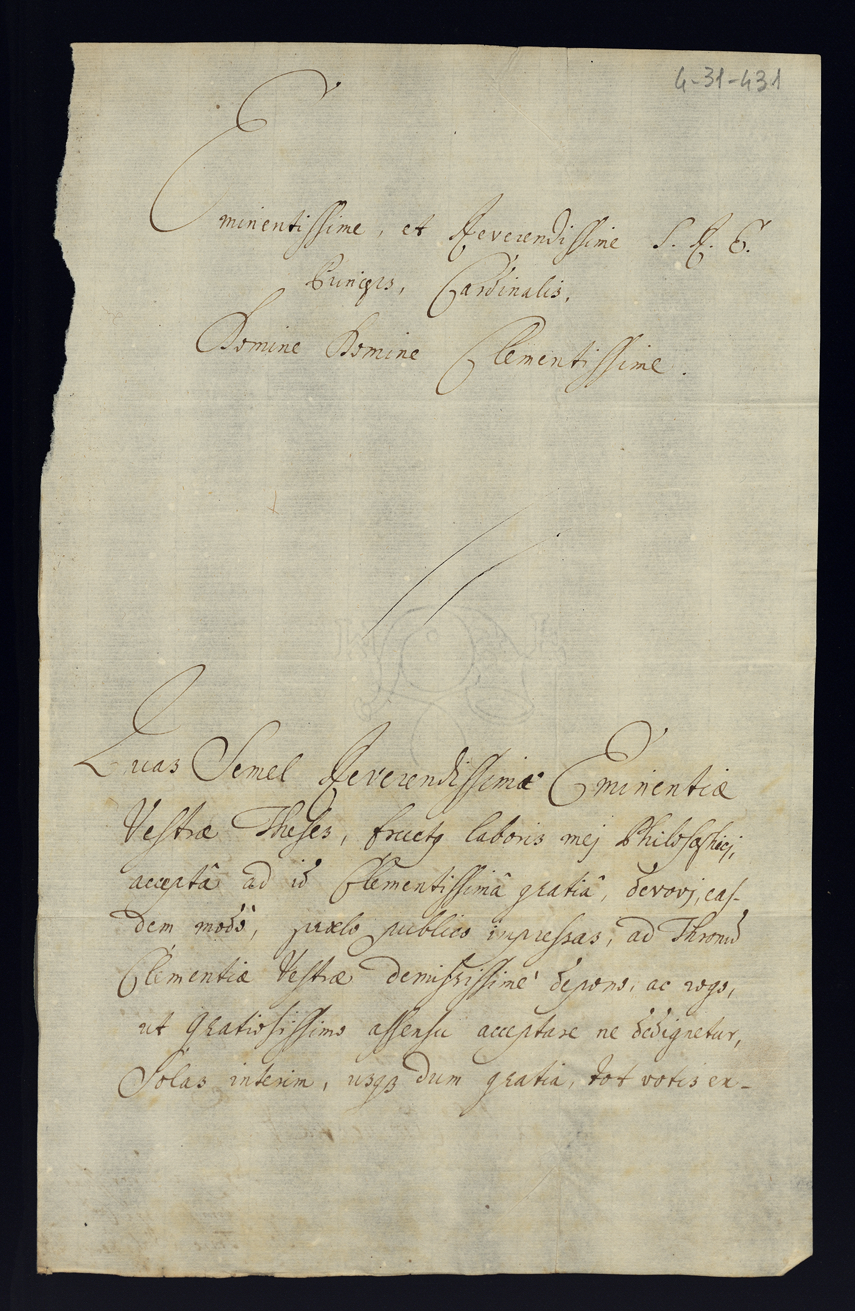 4-31-431
Eminentissime, et Reverendissime S. R. E.
Princeps, Cardinalis,
Domine Domine Clementissime.
Quas Semel Reverendissimæ Eminentiæ
Vestræ Theses, fructq laboris mej Philosophici,
acceptâ ad id Clementissimâ gratiâ, devovj, eas-
dem modò, prælo publico impressas, ad Thronũ
Clementiæ Vestræ demississimè depono, ac rogo,
ut gratiosissimo assensu acceptare ne dedignetur,
Solas interim, usqȝ dum gratia, tot votis ex-